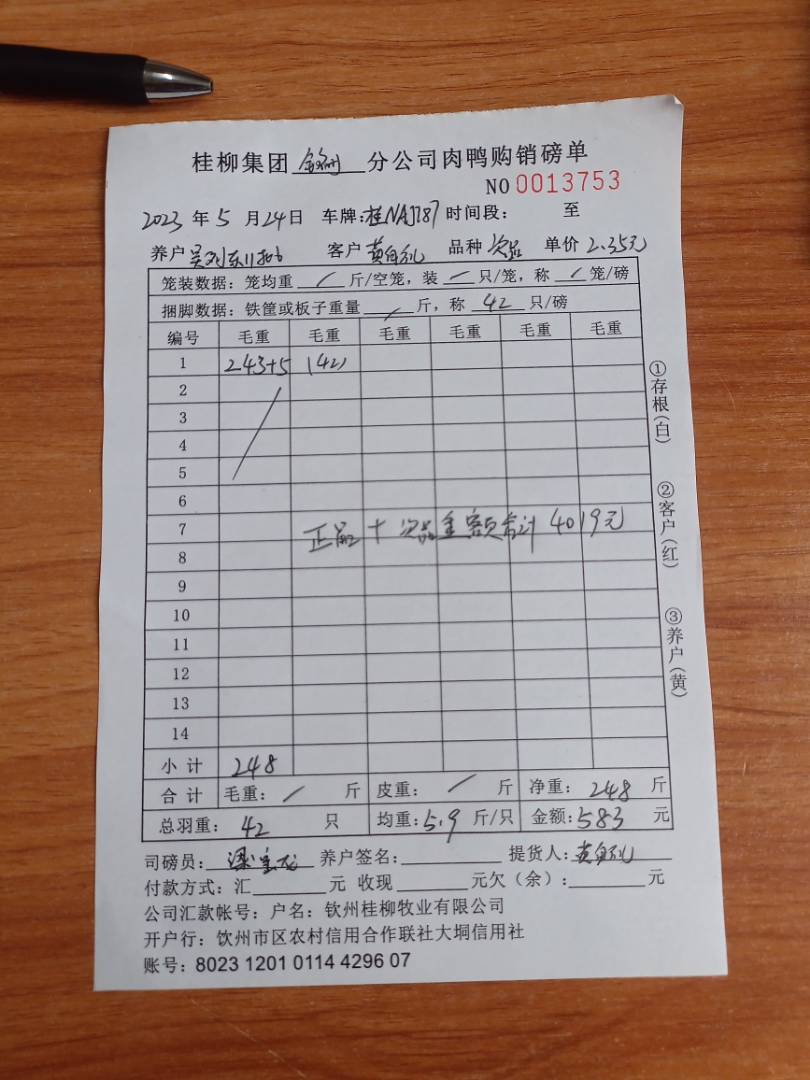 桂柳集团 钦州 分公司肉鸭购销磅单
NO 0013753
2023 年 5 月 24 日 车牌: 桂NAJ787 时间段: 至
养户 客户 黄 品种 次品 单价 2.35元
笼装数据: 笼均重 / 斤/空笼, 装 / 只/笼, 称 / 笼/磅
捆脚数据: 铁筐或板子重量 / 斤, 称 42 只/磅
编号 毛重 毛重 毛重 毛重 毛重 毛重
1 243+5 (42)
2
3
4
5
6
7 正品 + 次品金额合计 4019元
8
9
10
11
12
13
14
小计 248
合计 毛重: / 斤 皮重: / 斤 净重: 248 斤
总羽重: 42 只 均重: 5.9 斤/只 金额: 583 元
司磅员: 养户签名: 提货人: 黄
付款方式: 汇 元 收现 元欠(余): 元
公司汇款帐号: 户名: 钦州桂柳牧业有限公司
开户行: 钦州市区农村信用合作联社大垌信用社
账号: 8023 1201 0114 4296 07
①存根(白)
②客户(红)
③养户(黄)